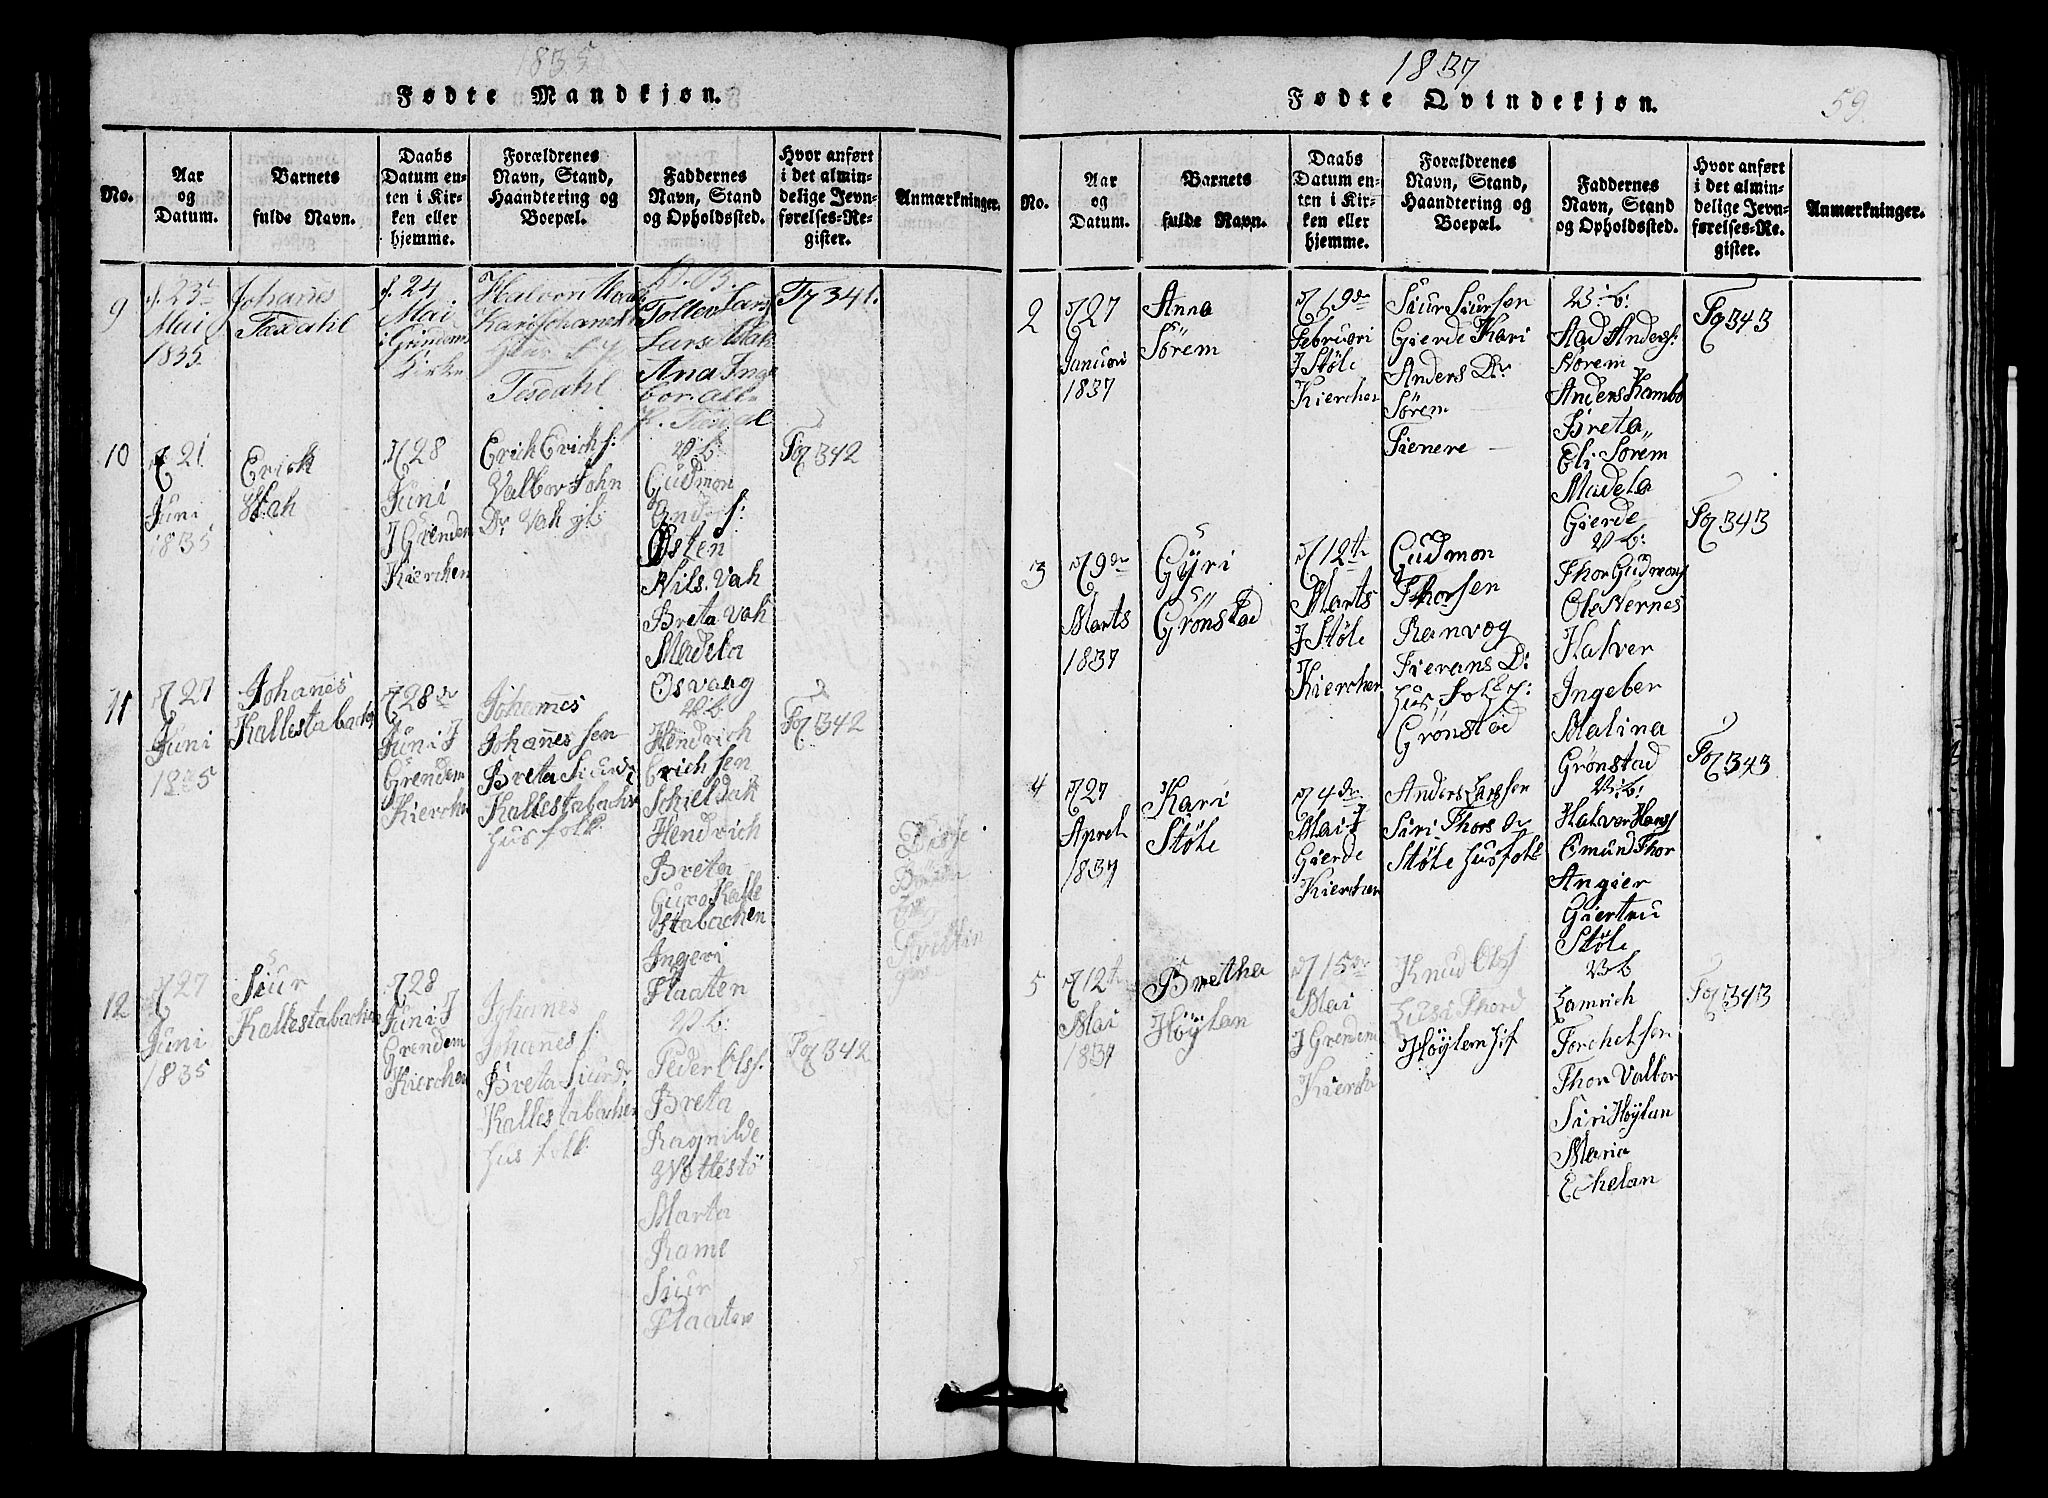 1835
Fødte Mandkjøn.
No.
Aar
og
Datum.
Barnets
fulde Navn.
Daabs
Datum en-
ten i Kir-
ken eller
hjemme.
Forældrenes
Navn, Stand,
Haandtering og
Boepæl.
Faddernes
Navn, Stand
og Opholdssted.
Hvor anført
i det almin-
delige Jevn-
førelses-Re-
gister.
Anmærkninger.
9
23
Mai
1835
Johanes
Tasdahl
d. 24
Mai
i Grindem
Kirke
Tesdahl
Ana Inge
Fg 341.
10
21
Juni
1835
Erick
Wah
28
Juni
I Grendem
Kierchen
Erich Erichs:
Valbor John
Dr Vah
v b:
Gudmon
Østen
Nils Vah
Breta Vah
Madela
Osvaag
Fg 342
11
27
Juni
1835
Johanes
Kallestabache
28de
Juni I
Grendem
Kierchen
Johannes
Johannessen
Breta Siurd:
Kallestabachen
husfolk:
v b:
Hendrich
Erichsen
Schieldah
Hendrich
Breta
Guro Kalle
stabachen
Ingeri
Flaaten
Fg 342
12
27
Juni
1835
Siur
Kallestabachen
28
Juni I
Grendem
Kierchen
Johanes
Johanes f.
Breta Siurd:
Kallestabachen
husfolk:
v b:
Peder Olsf.
Breta
Ragnilde
Marta
Rame
Siur
Flaaten
Fg 342
1837
Fødte Qvindekjøn.
59.
No.
Aar
og
Datum.
Barnets
fulde Navn.
Daabs
Datum en-
ten i Kir-
ken eller
hjemme.
Forældrenes
Navn, Stand,
Haandtering og
Boepæl.
Faddernes
Navn, Stand
og Opholdssted.
Hvor anført
i det almin-
delige Jevn-
førelses-Re-
gister.
Anmærkninger.
2
27
Januari
1837
Anna
Sörem
19de
Februari
I Støle
Kierchen
Siur Siursen
Gierde Kari
Anders Dr
Sörem
Tienere
v: b:
Aad Anders:
Sörem
Anders Kambo
Breta
Eli Sorem
Madela
Gierde
Fg 343
3
9de
Marts
1837
Gÿri
Grönstad
12te
Marts
I Støle
Kierchen
Gudmon
Thorsen
Ranvog
Tierans D:
husfolk:
Grönstad
v b:
Thor Gudmons
Ole Nernes
Halver
Ingeber
Malina
Grønstad
Fg 343
4
27
Apreh
1837
Kari
Støle
4de
Mai I
Gierde
Kierchen
Anders Larssen
Siri Thors Dr
Støle husfolk
v: b:
Halver Hansf
Omund Thor
Angier
Giertru
Støle
Fg 343
5
12te
Mai
1837
Bretha
Höÿlan
15de
Mai
I Grendem
Kiercha
Knud Olsf
Lusi Thord
Høÿlem hsf
v b
Lamrich
Torchelsen
Thor Valbor
Siri Høÿlan
Maria
Echelan
Fg 343